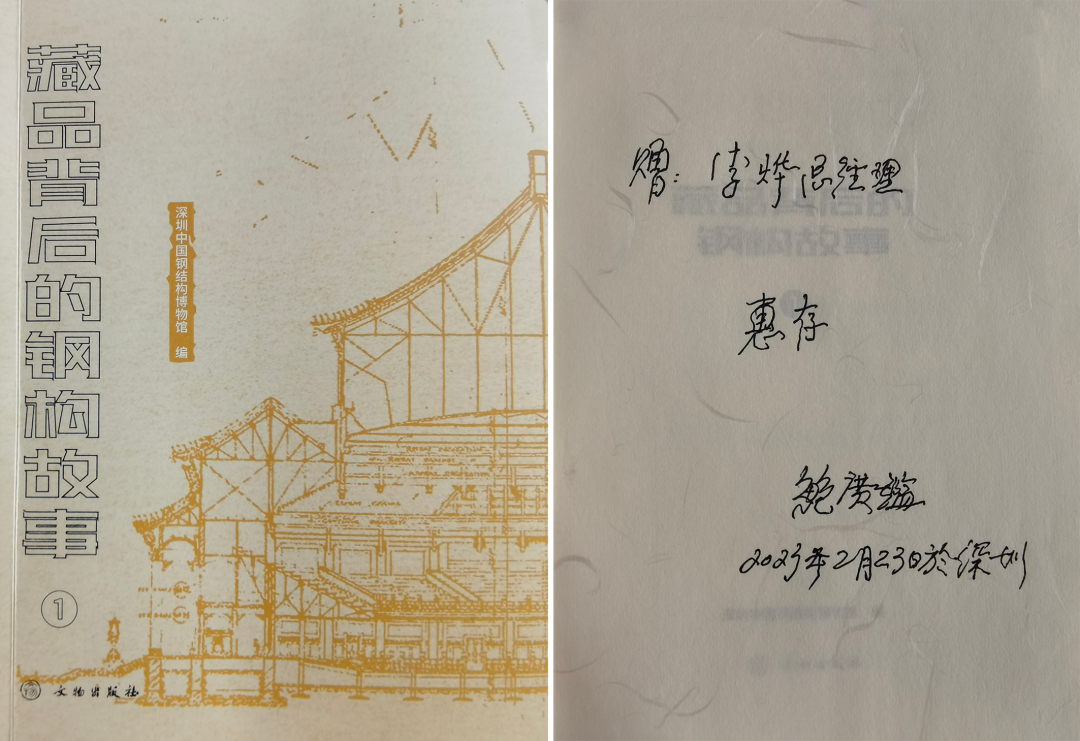 藏品背后的钢构故事
①
深圳中国钢结构博物馆 编
文物出版社
赠：李烨总经理
惠存
鲍廣鑑
2023年2月23日於深圳